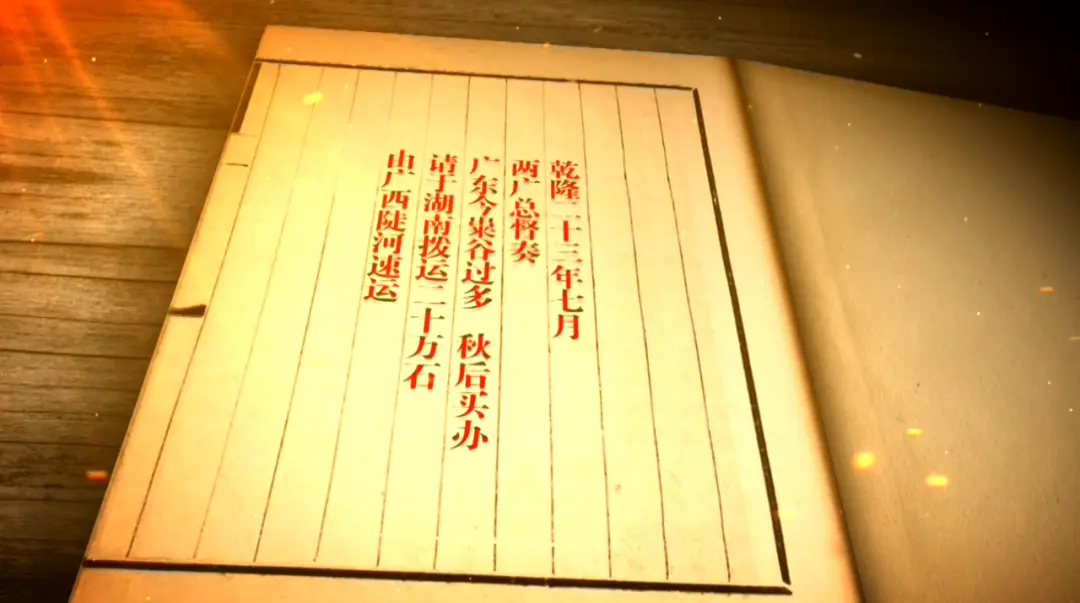 乾隆二十三年七月
两广总督奏
广东今粜谷过多 秋后买办
请于湖南拨运二十万石
由广西陡河速运